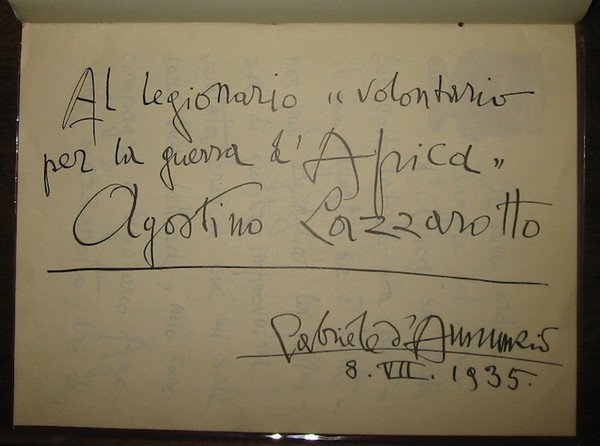 Al legionario «volontario
per la guerra d'Africa»
Agostino Lazzarotto
Gabriele d'Annunzio
8. VII. 1935.